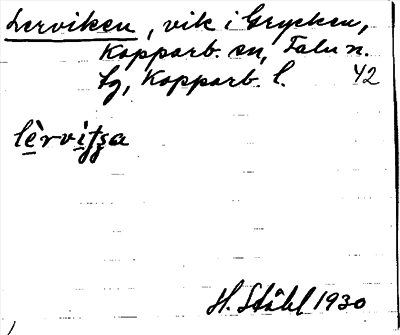 Lerviken, vik i Grycken,
Kopparb. sn, Falu n.
lg, Kopparb. l. 42
lèrvitsa
H. Ståhl 1930